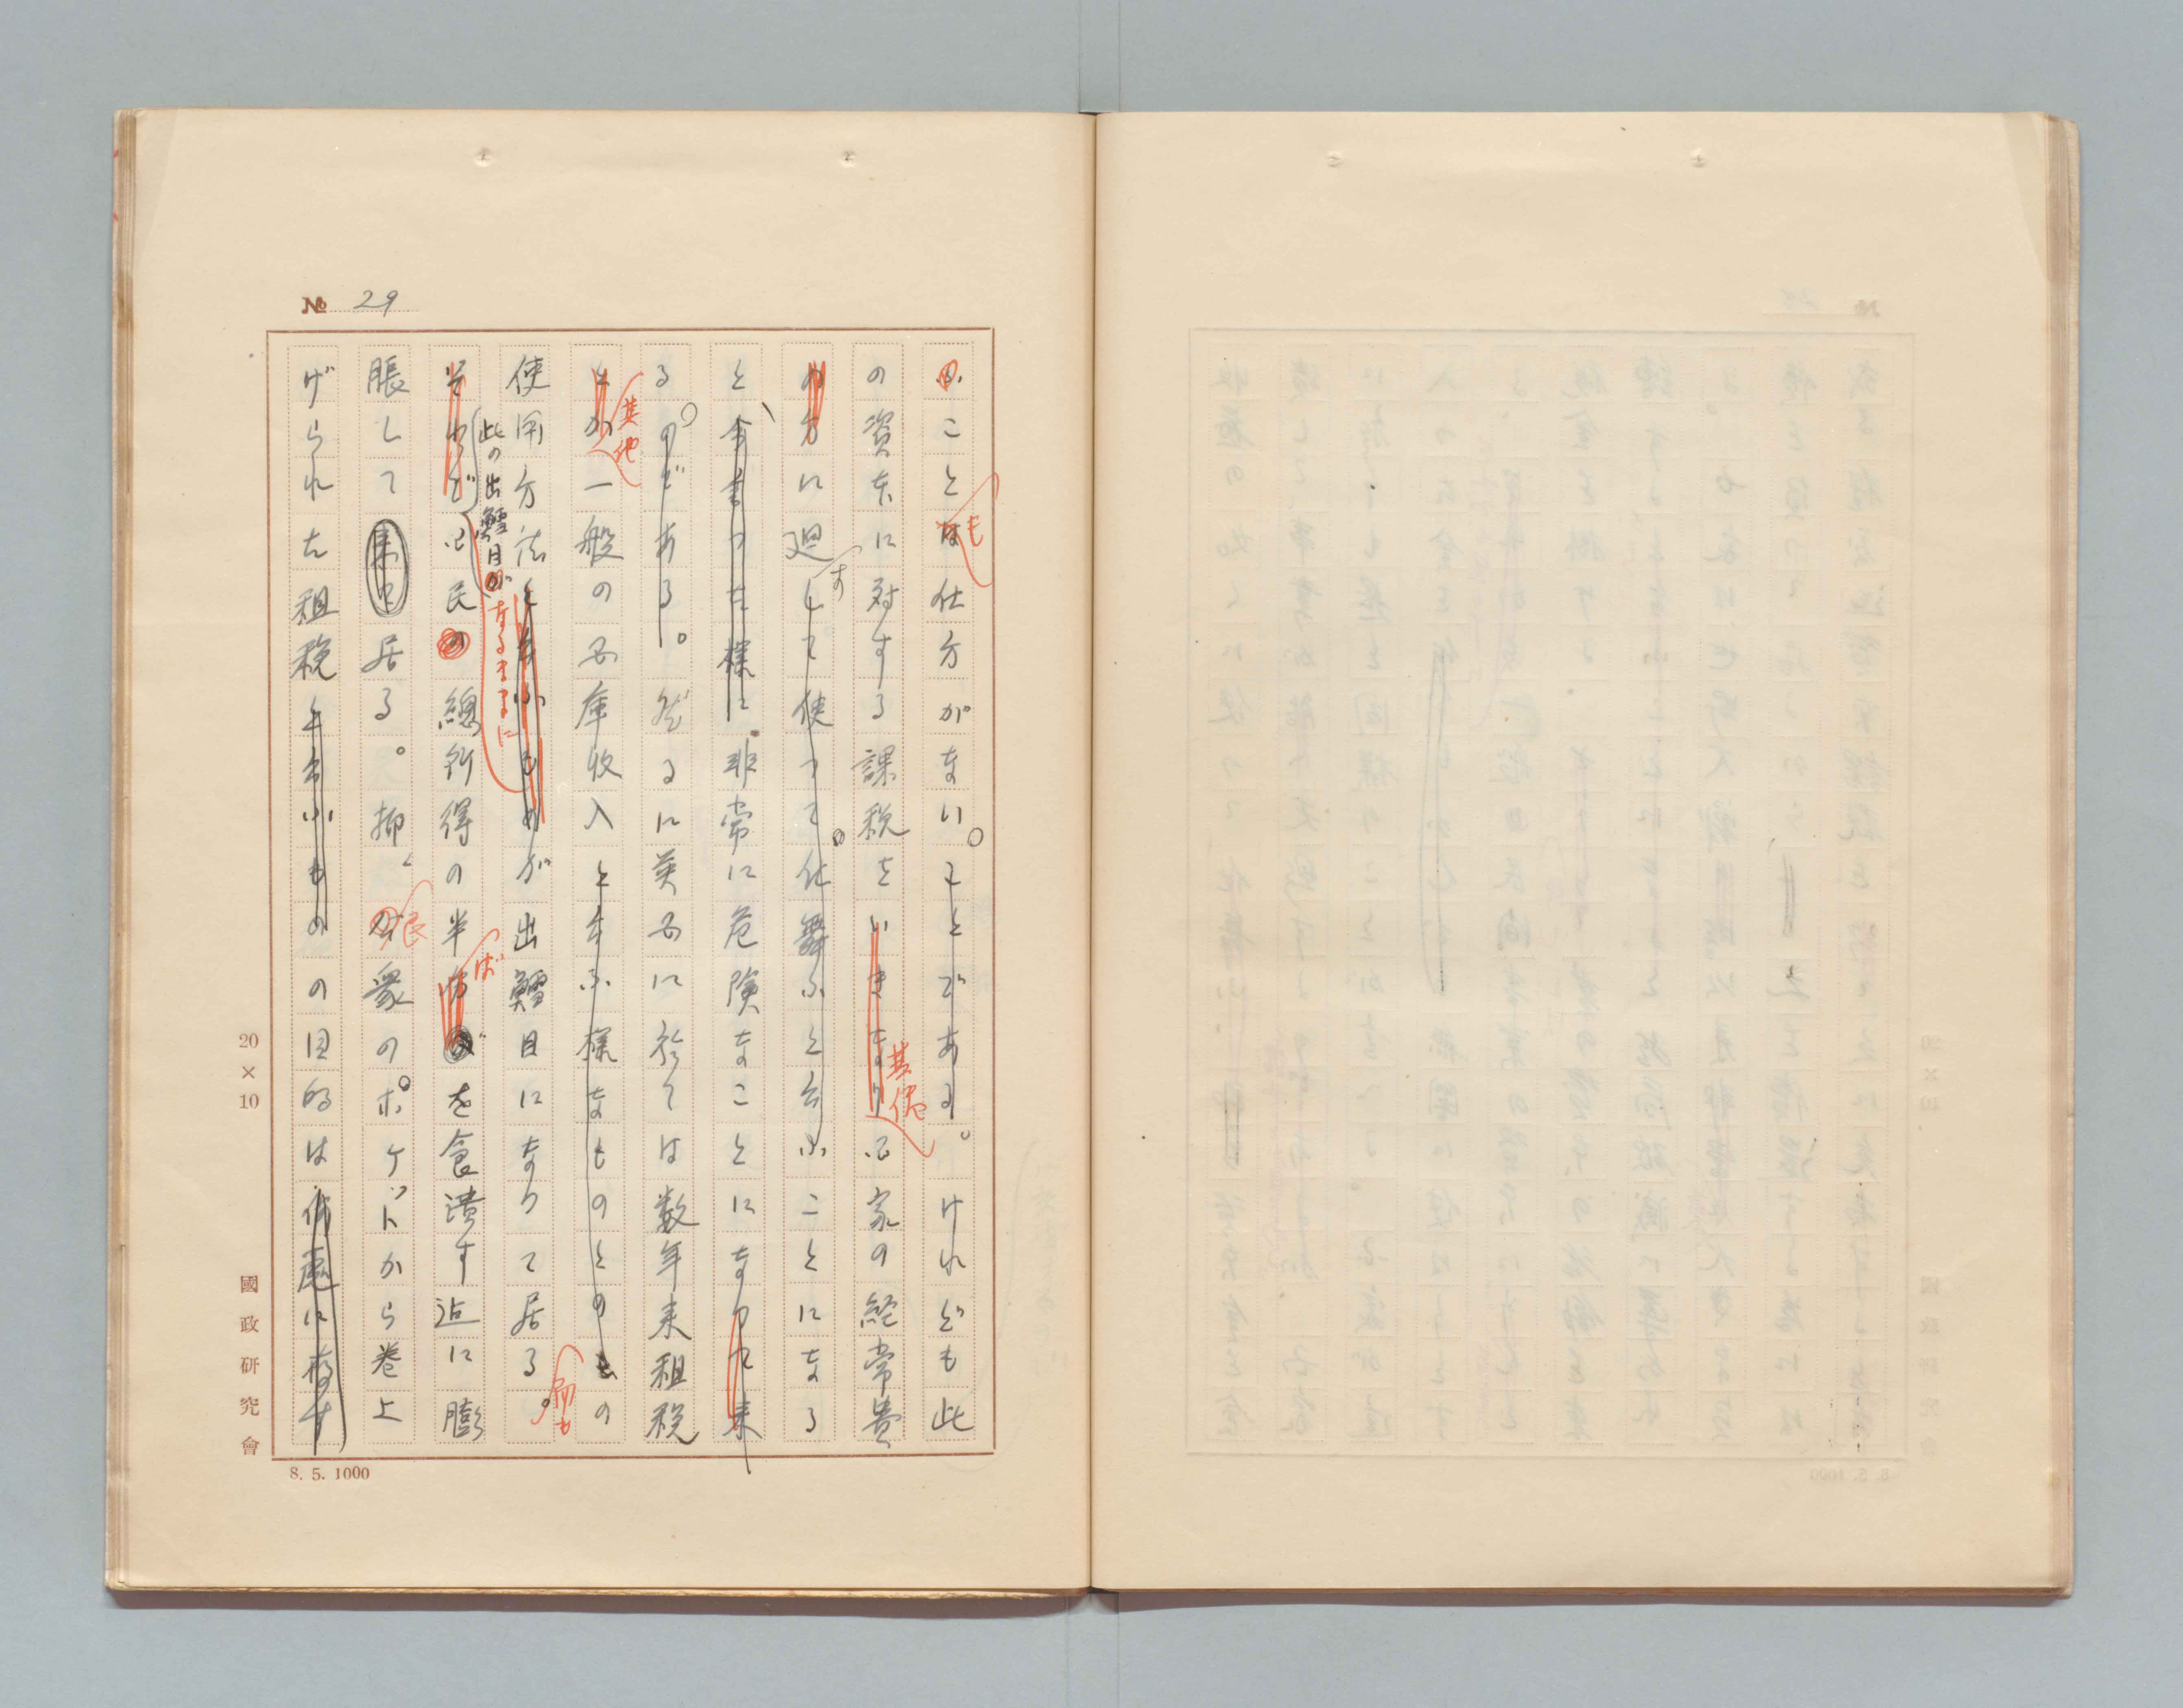 № 29
ふことは仕方がない。ことである。けれども此
も
の資本に対する課税をいきなり国家の経常費
其儘
の方に廻して使つて仕舞ふと云ふことになる
す
と、今言つた様に非常に危険なことになつて来
る。のである。然るに英国に於ては数年来租税
とか一般の国庫収入と云ふ様なものとのものの
其他
使用方法と云ふものが出鱈目になつて居る。
而も
此の出鱈目がなるままに
それが国民の総所得の半分を食潰す迄に膨
ば
脹して来て居る。抑々公衆のポケットから巻上
民
げられた租税と云ふものの目的は何処に存す
20×10
國政研究會
8. 5. 1000